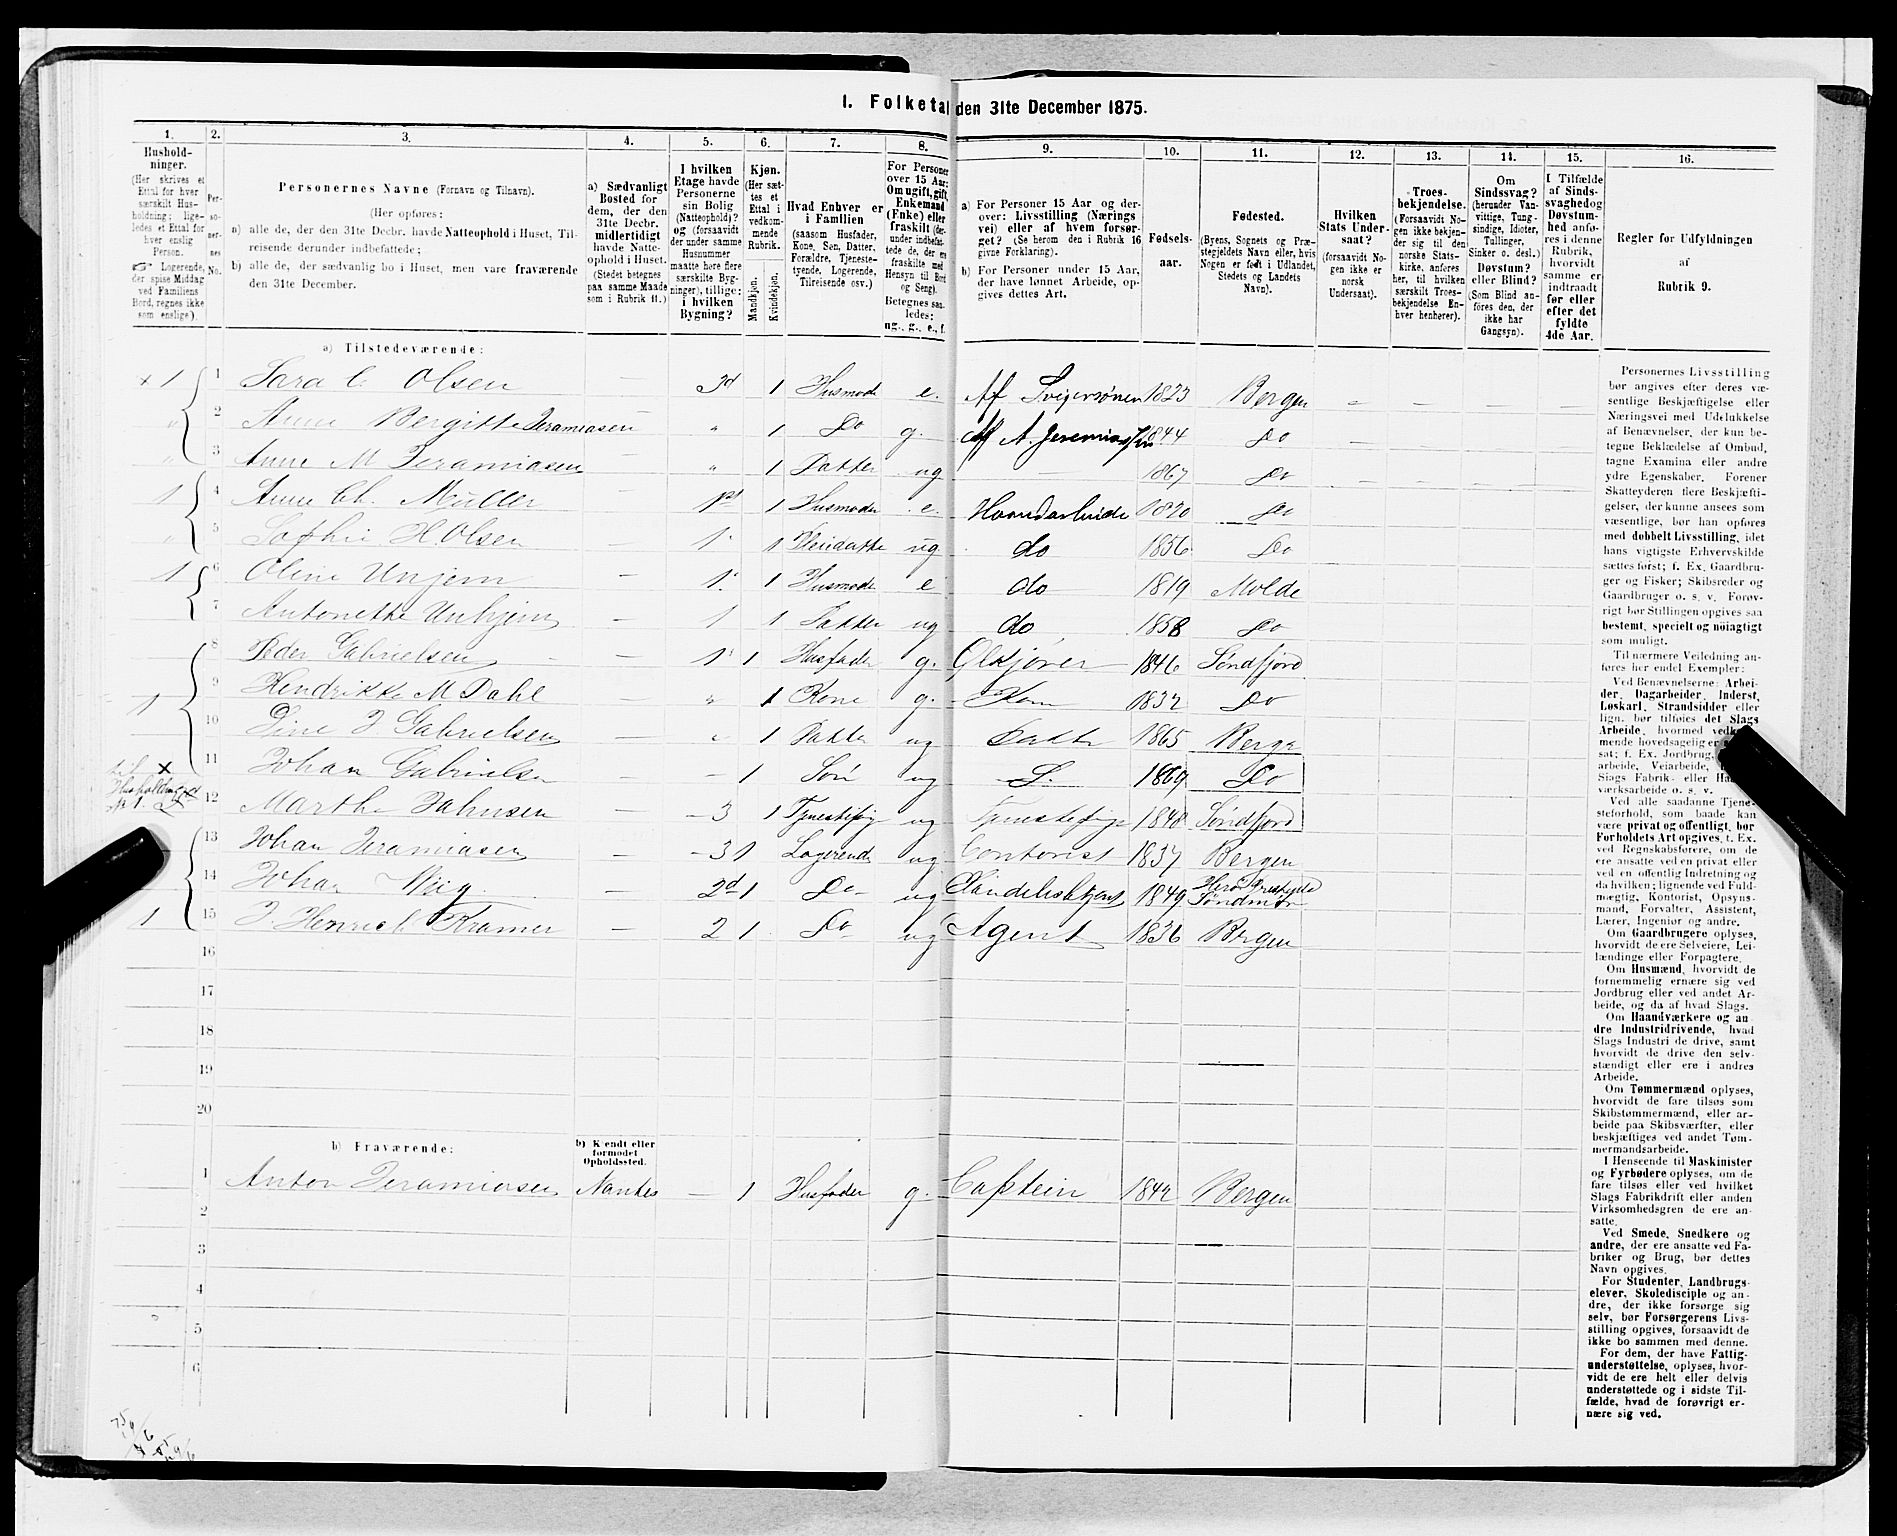 1. Folketal den 31te December 1875.
1.
Hushold-
ninger.
(Her skrives et
Ettal for hver
særskilt Hus-
holdning; lige-
ledes et Ettal for
hver enslig
Person.
☞ Logerende,
der spise Middag
ved Familiens
Bord, regnes ikke
som enslige).
2.
Per-
so-
ner-
nes
No.
3.
Personernes Navne (Fornavn og Tilnavn).
(Her opføres:
a) alle de, der den 31te Decbr. havde Natteophold i Huset, Til-
reisende derunder indbefattede;
b) alle de, der sædvanlig bo i Huset, men vare fraværende
den 31te December.
4.
a) Sædvanligt
Bosted for
dem, der den
31te Decbr.
midlertidigt
havde Natte-
ophold i Huset.
(Stedet betegnes
paa samme Maade
som i Rubrik 11.)
5.
I hvilken
Etage havde
Personerne
sin Bolig
(Natteophold)?
og (forsaavidt
der under samme
Husnummer
maatte høre flere
særskilte Byg-
ninger), tillige:
i hvilken
Bygning?
6.
Kjøn.
(Her sæt-
tes et
Ettal i
vedkom-
mende
Rubrik.
Mandkjøn.
Kvindekjøn.
7.
Hvad Enhver er
i Familien
(saasom Husfader,
Kone, Søn, Datter,
Forældre, Tjeneste-
tyende, Logerende,
Tilreisende osv.)
8.
For Personer
over 15 Aar:
Om ugift, gift,
Enkemand
(Enke) eller
fraskilt (der-
under indbefat-
tede de, der ere
fraskilte med
Hensyn til Bord
og Seng).
Betegnes saa-
ledes:
ug., g., e., f.
9.
a) For Personer 15 Aar og der-
over: Livsstilling (Nærings
vei) eller af hvem forsør-
get? (Se herom den i Rubrik 16
givne Forklaring).
b) For Personer under 15 Aar,
der have lønnet Arbeide, op-
gives dettes Art.
10.
Fødsels-
aar.
11.
Fødested.
(Byens, Sognets og Præ-
stegjeldets Navn eller, hvis
Nogen er født i Udlandet,
Stedets og Landets
Navn).
12.
Hvilken
Stats Under-
saat?
(forsaavidt No-
gen ikke er
norsk
Undersaat).
13.
Troes-
bekjendelse.
(Forsaavidt No-
gen ikke bekjen-
der sig til den
norske Stats-
kirke, anføres
her, til hvilken
særskilt Troes-
bekjendelse En-
hver henhører).
14.
Om
Sindssvag?
(herunder Van-
vittige, Tung-
sindige, Idioter,
Tullinger,
Sinker o. desl.)
Døvstum?
eller Blind?
(Som Blind an-
føres den, der
ikke har
Gangsyn).
15.
I Tilfælde
af Sinds-
svaghed og
Døvstum-
hed anfø-
res i denne
Rubrik,
hvorvidt
samme er
indtraadt
før eller
efter det
fyldte
4de Aar.
16.
Regler for Udfyldningen
af
Rubrik 9.
a) Tilstedeværende:
× 1 1 Sara C Olsen — 3d 1 Husmoder e. Af Svigersønen 1823 Bergen
2 Anne Bergitte Jeramiasen — " 1 Do g. Af A. Jeremiassen 1844 Do
3 Anne M Jeramiasen — " 1 Datter ug — 1867 Do
1 4 Anne Ch. Müller — 1st 1 Husmoder e. Haandarbeide 1820 Do
5 Sophie H. Olsen — 1. 1 Pleiedatter ug do 1856 Do
1 6 Oline Unjem — 1. 1 Husmoder e do 1819 Molde
7 Antonette Unhjem — 1 1 Datter ug do 1858 Do
8 Peder Gabrielsen 1 1 Husfader g. Ølkjører 1846 Søndfjord
1 9 Hendrikke M Dahl — " 1 Kone g. Kone 1832 Do
10 Line J. Gabrielsen — " 1 Datter ug Datter 1865 Bergen
11 Johan Gabrielsen — - 1 Søn ug S. 1869 Do
til × Husholdning № 1.
12 Marthe Johnsen — 3 1 Tjenestepige ug Tjenestepige 1848 Søndfjord
13 Johan Jeramiasen — 3 1 Logerende ug Contorist 1837 Bergen
14 Johan Wiig — 2d 1 Do ug Handelsbetjent 1849 Herø Præstegjeld Søndmør
1 15 J. Henrich Kramer — 2 1 Do ug Agent 1836 Bergen
16
17
18
19
20
b) Fraværende:
b) Kjendt eller
formodet
Opholdssted.
1 Anton Jeramiasen Nantes — 1 Husfader g. Captein 1842 Bergen
2
3
4
5
6
Personernes Livsstilling
bør angives efter deres væ-
sentlige Beskjæftigelse eller
Næringsvei med Udelukkelse
af Benævnelser, der kun be-
tegne Beklædelse af Ombud,
tagne Examina eller andre
ydre Egenskaber. Forener
Skatteyderen flere Beskjæfti-
gelser, der kunne ansees som
væsentlige, bør han opføres
med dobbelt Livsstilling, idet
hans vigtigste Erhvervskilde
sættes først; f. Ex. Gaardbru-
ger og Fisker; Skibsreder og
Gaardbruger o. s. v. Forøv-
rigt bør Stillingen opgives saa
bestemt, specielt og nøiagtigt
som muligt.
Til nærmere Veiledning an-
føres her endel Exempler:
Ved Benævnelserne: Arbei-
der, Dagarbeider, Inderst,
Løskarl, Strandsidder eller
lign. bør tilføies det Slags
Arbeide, hvormed vedkom-
mende hovedsagelig er
sat; f. Ex. Jordbrug,
arbeide, Veiarbeide,
Slags Fabrik- eller
værksarbeide o. s. v.
Ved alle saadanne Tjene-
steforhold, som baade kan
være privat og offentligt, bør
Forholdets Art opgives, t. Ex.
ved Regnskabsførere, om de
ere ansatte ved en privat eller
ved en offentlig Indretning og
da hvilken; lignende ved Fuld-
mægtig, Kontorist, Opsyns-
mand, Forvalter, Assistent,
Lærer, Ingeniør og andre.
Om Gaardbrugere oplyses,
hvorvidt de ere Selveiere, Lei-
lændinge eller Forpagtere.
Om Husmænd, hvorvidt de
fornemmelig ernære sig ved
Jordbrug eller ved andet Ar-
beide, og da af hvad Slags.
Om Haandværkere og an
dre Industridrivende, hvad
Slags Industri de drive, samt
hvorvidt de drive den selv-
stændigt eller ere i andres
Arbeide.
Om Tømmermænd oplyses,
hvorvidt de fare tilsøs som
Skibstømmermænd, eller ar-
beide paa Skibsværfter, eller
beskjæftiges ved andet Tøm-
mermandsarbeide.
I Henseende til Maskinister
og Fyrbødere oplyses, om de
fare tilsøs eller ved hvilket
Slags Fabrikdrift eller anden
Virksomhedsgren de ere an-
satte.
Ved Smede, Snedkere og
andre, der ere ansatte ved Fa-
briker og Brug, bør dettes
Navn opgives.
For Studenter, Landbrugs-
elever, Skoledisciple og an-
dre, der ikke forsørge sig
selv, bør Forsørgerens Livs-
stilling opgives, forsaavidt de
ikke bo sammen med denne.
For dem, der have Fattig-
understøttelse, oplyses, hvor-
vidt de ere helt eller delvis
understøttede og i sidste Til-
fælde, hvad de forøvrigt er-
nære sig ved.